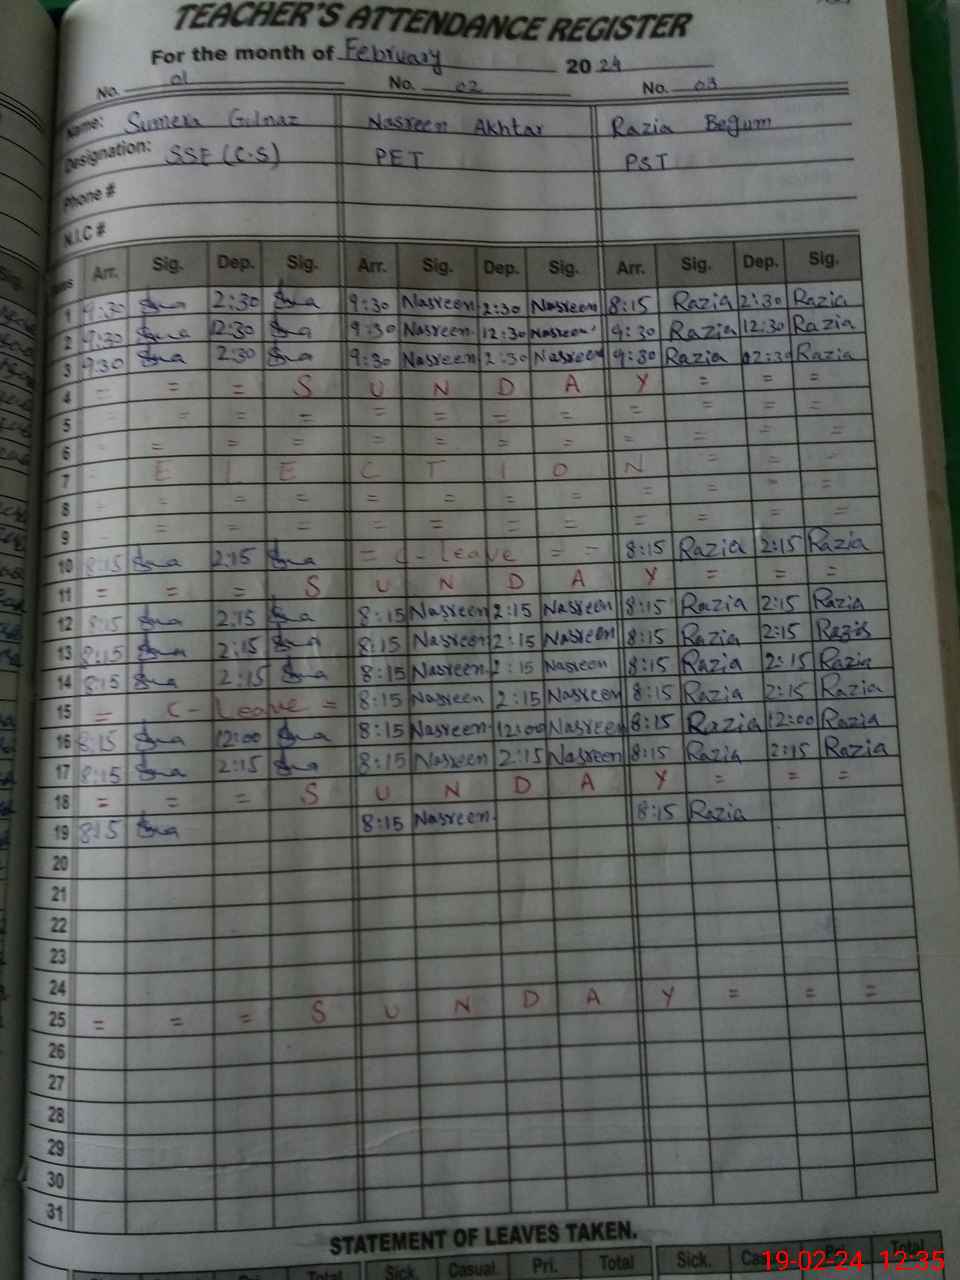 TEACHER'S ATTENDANCE REGISTER
For the month of February 2024
No. 01 No. 02 No. 03
Name: Sumera Gulnaz Nasreen Akhtar Razia Begum
Designation: SSE (C.S) PET PST
Phone #
N.I.C #
Arr. Sig. Dep. Sig. Arr. Sig. Dep. Sig. Arr. Sig. Dep. Sig.
1 9:30 2:30 9:30 Nasreen 2:30 Nasreen 8:15 Razia 2:30 Razia
2 9:30 12:30 9:30 Nasreen 12:30 Nasreen 9:30 Razia 12:30 Razia
3 9:30 2:30 9:30 Nasreen 2:30 Nasreen 9:30 Razia 2:30 Razia
4 = = = S U N D A Y = = =
5 = = = = = = = = = = =
6 = = = = = = = = = =
7 E L E C T I O N = = =
8 = = = = = = = = = = =
9 = = = = = = = = = = =
10 8:15 2:15 = C-leave = = 8:15 Razia 2:15 Razia
11 = = = S U N D A Y = = =
12 8:15 2:15 8:15 Nasreen 2:15 Nasreen 8:15 Razia 2:15 Razia
13 8:15 2:15 8:15 Nasreen 2:15 Nasreen 8:15 Razia 2:15 Razia
14 8:15 2:15 8:15 Nasreen 2:15 Nasreen 8:15 Razia 2:15 Razia
15 = C-Leave = 8:15 Nasreen 2:15 Nasreen 8:15 Razia 2:15 Razia
16 8:15 12:00 8:15 Nasreen 12:00 Nasreen 8:15 Razia 12:00 Razia
17 8:15 2:15 8:15 Nasreen 2:15 Nasreen 8:15 Razia 2:15 Razia
18 = = = S U N D A Y = = =
19 8:15 8:15 Nasreen 8:15 Razia
20
21
22
23
24
25 = = = S U N D A Y = = =
26
27
28
29
30
31
STATEMENT OF LEAVES TAKEN.
Pri. Total Sick Casual Pri. Total Sick. Total
19-02-24 12:35